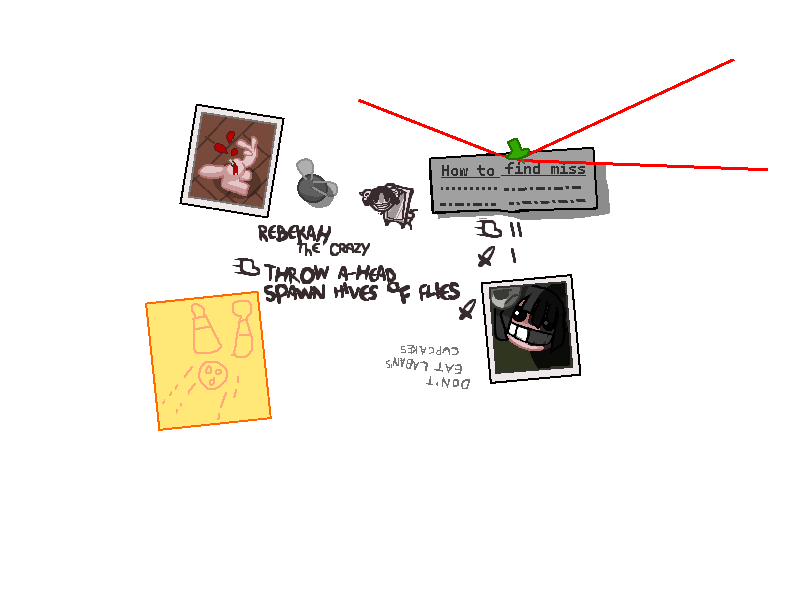 How to find miss
II
REBEKAH
THE CRAZY
I
THROW A-HEAD
SPAWN HIVES OF FLIES
DON'T
EAT LABAN'S
CUPCAKES